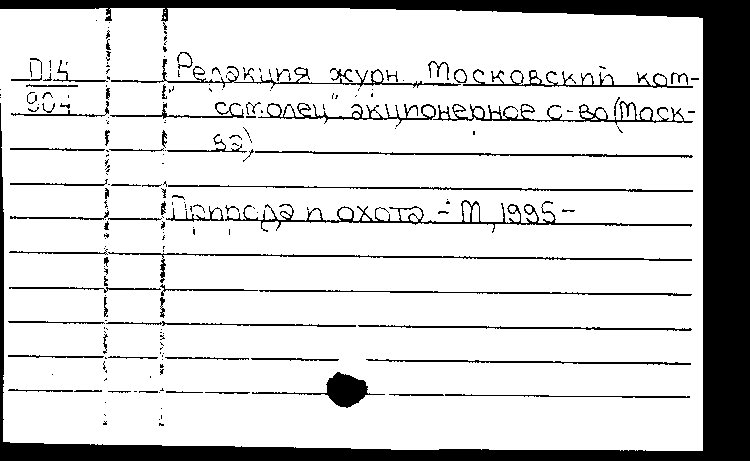 П14
904
Редакция журн. „Московский ком-
сомолец" акционерное о-во (Моск-
ва)
Природа и охота. - М, 1995-